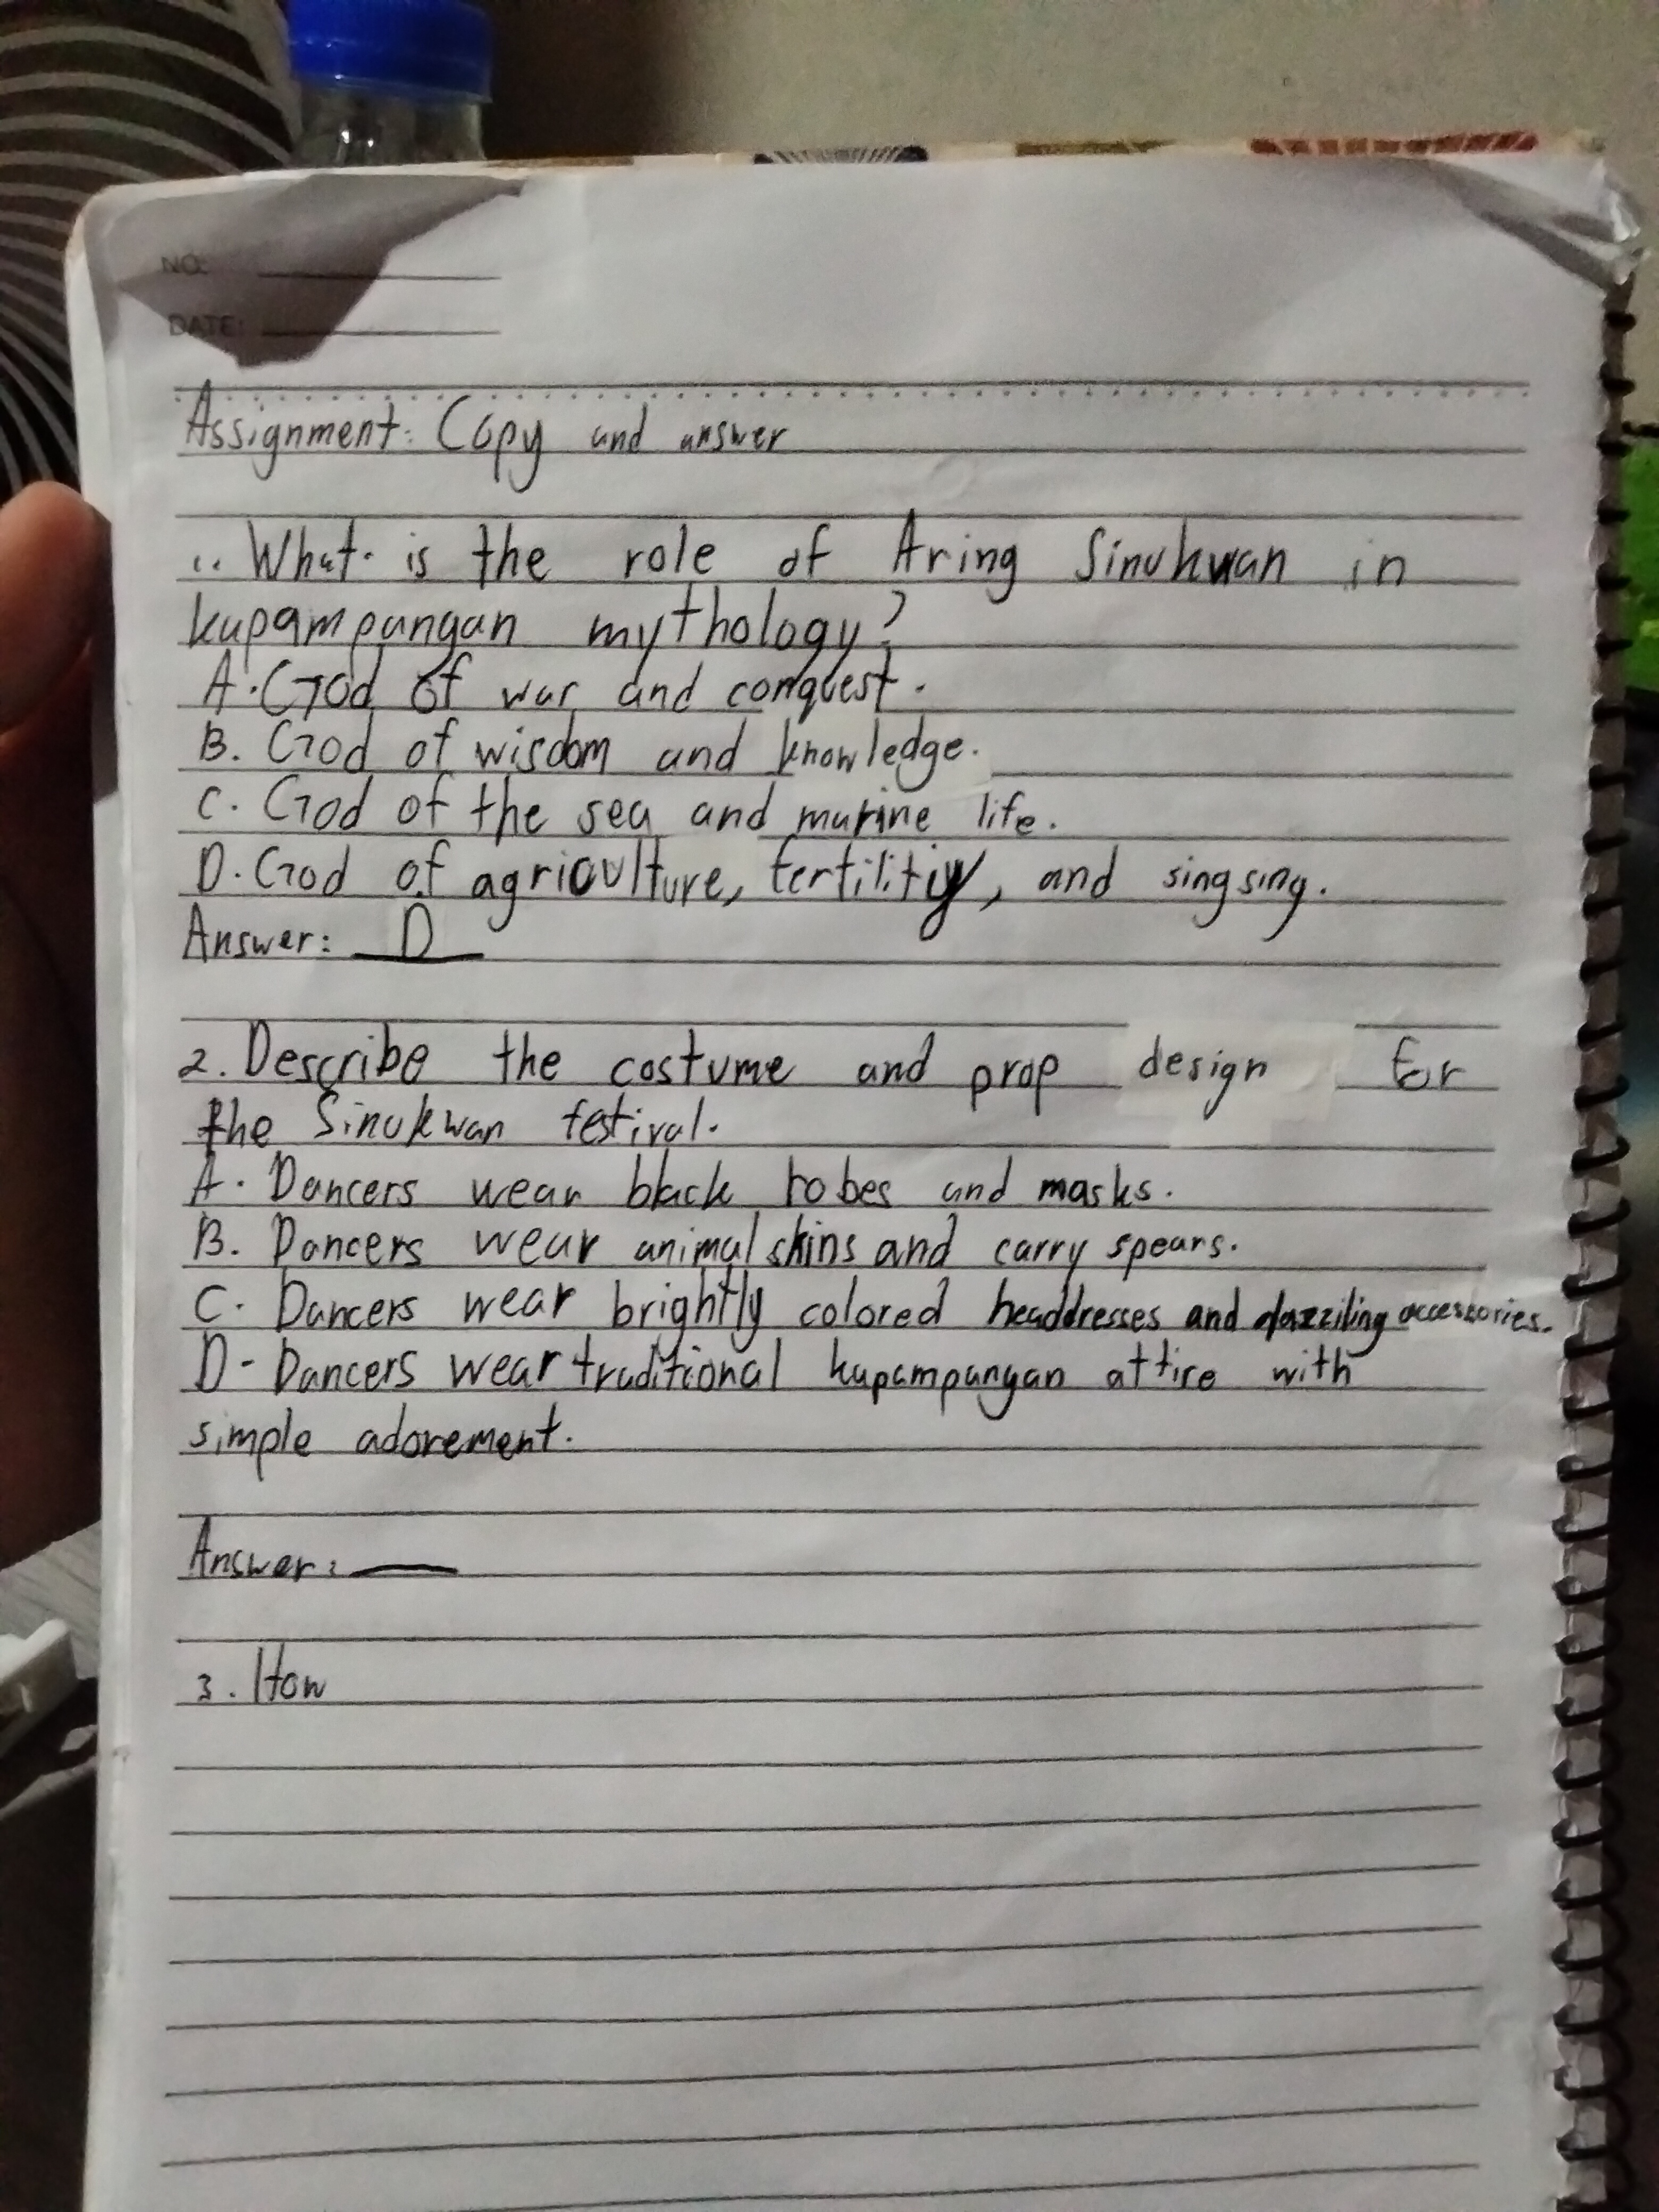 NO:
DATE:
Assignment: Copy and answer
1. What is the role of Aring Sinukwan in
kapampangan mythology?
A. God of war and conquest.
B. God of wisdom and knowledge.
C. God of the sea and marine life.
D. God of agriculture, fertilitiy, and singsing.
Answer: D
2. Describe the costume and prop design for
the Sinukwan festival.
A. Dancers wear black robes and masks.
B. Dancers wear animal skins and carry spears.
C. Dancers wear brightly colored headdresses and dazziling accessories.
D- Dancers wear traditional kapampangan attire with
simple adorement.
Answer:
3. How